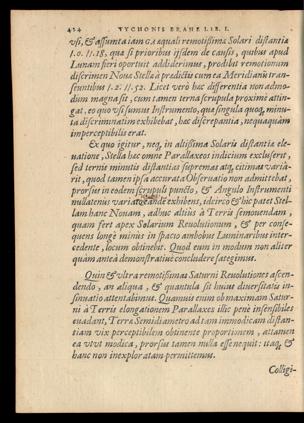 424 TYCHONIS BRAHE LIB. I.
vsi, & assumta iam GA æquali remotissimæ Solari distantiæ
1.0. 11.18, qua si prioribus ijsdem de causis, quibus apud
Lunam fieri oportuit addiderimus, prodit remotionum
discrimen Nouæ Stellæ à prædictis cum ea Meridianũ tran-
seuntibus 1.2. 11.52. Licet verò hæc differentia non admo-
dum magna sit, cum tamen terna scrupula proximè attin-
gat, eo quo vsi sumus Instrumento, qua singula quoq; minu-
ta discriminatim exhibebat, hæc discrepantia, nequaquàm
imperceptibilis erat.
Ex quo igitur, neq, in altissima Solaris distantiæ ele-
uatione, Stella hæc omne Parallaxeos indicium excluserit,
sed ternis minutis distantias supremas atq, citimas variâ-
rit, quod tamen ipsa accurata Obseruatio non admittebat,
prorsus in eodem scrupuli puncto, & Angulo Instrumenti
nullatenus variato exhibens, idcirco & hic patet Stel-
lam hanc Nouam, adhuc altiùs à Terris semouendam,
quàm fert apex Solarium Reuolutionum, & per conse-
quens longè minùs in spacio ambobus Luminaribus inter-
cedente, locum obtinebit. Quod eum in modum non aliter
quàm anteà demonstratiuè concludere sategimus.
Quin & vltra remotissimas Saturni Reuolutiones ascen-
dendo, an aliqua, & quantula sit huius diuersitatis in-
sinuatio attentabimus. Quamuis enim ob maximam Satur-
ni à Terris elongationem Parallaxes illic penè insensibiles
euadant, Terræ Semidiametro ad tam immodicam distan-
tiam vix perceptibilem obtinente proportionem, attamen
ea vtvt modica, prorsus tamen nulla esse nequit: itaq, &
hanc non inexploratam permittemus.
Colligi-